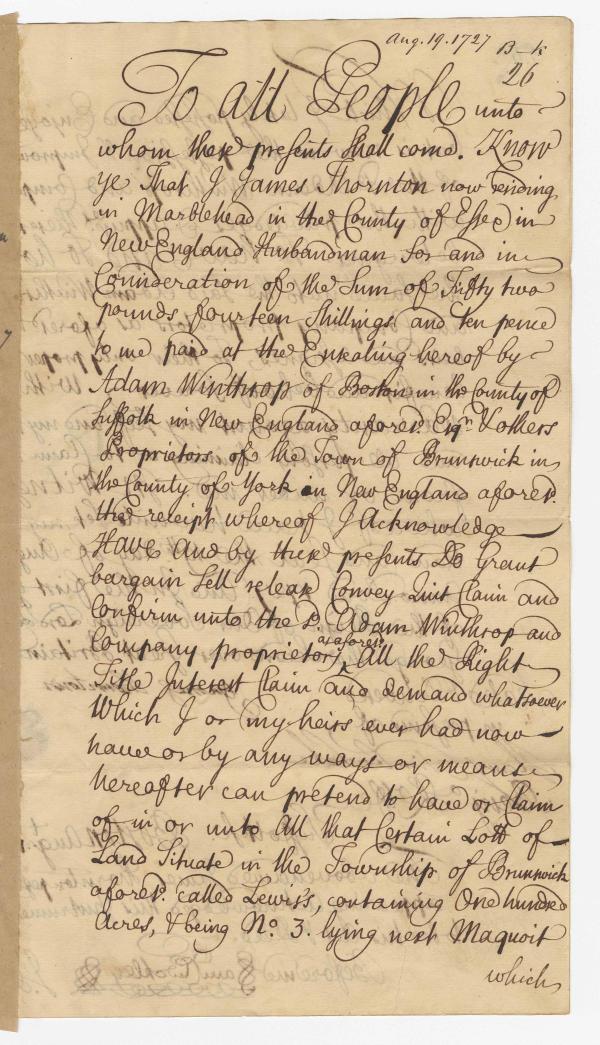 Aug. 19. 1727
B-k
26
To all People unto
whom these presents shall come. Know
ye That I James Thornton now residing
in Marblehead in the County of Essex in
New England Husbandman for and in
Consideration of the Sum of Fifty two
pounds fourteen shillings and ten pence
to me paid at the Ensealing hereof by
Adam Winthrop of Boston in the County of
Suffolk in New England afores.d Esq.r & others
Proprietors of the Town of Brunswick in
the County of York in New England afores.d
the receipt whereof I Acknowledge
Have And by these presents Do Grant
bargain Sell release Convey Quit Claim and
Confirm unto the s.d Adam Winthrop and
Company proprietors as afores.d, All the Right
Title Interest Claim and demand whatsoever
Which I or my heirs ever had now
have or by any ways or means
hereafter can pretend to have or Claim
of in or unto All that Certain Lott of
Land Situate in the Township of Brunswick
afores.d called Lewis's, containing One hundred
Acres, & being No. 3. lying next Maquoit
which